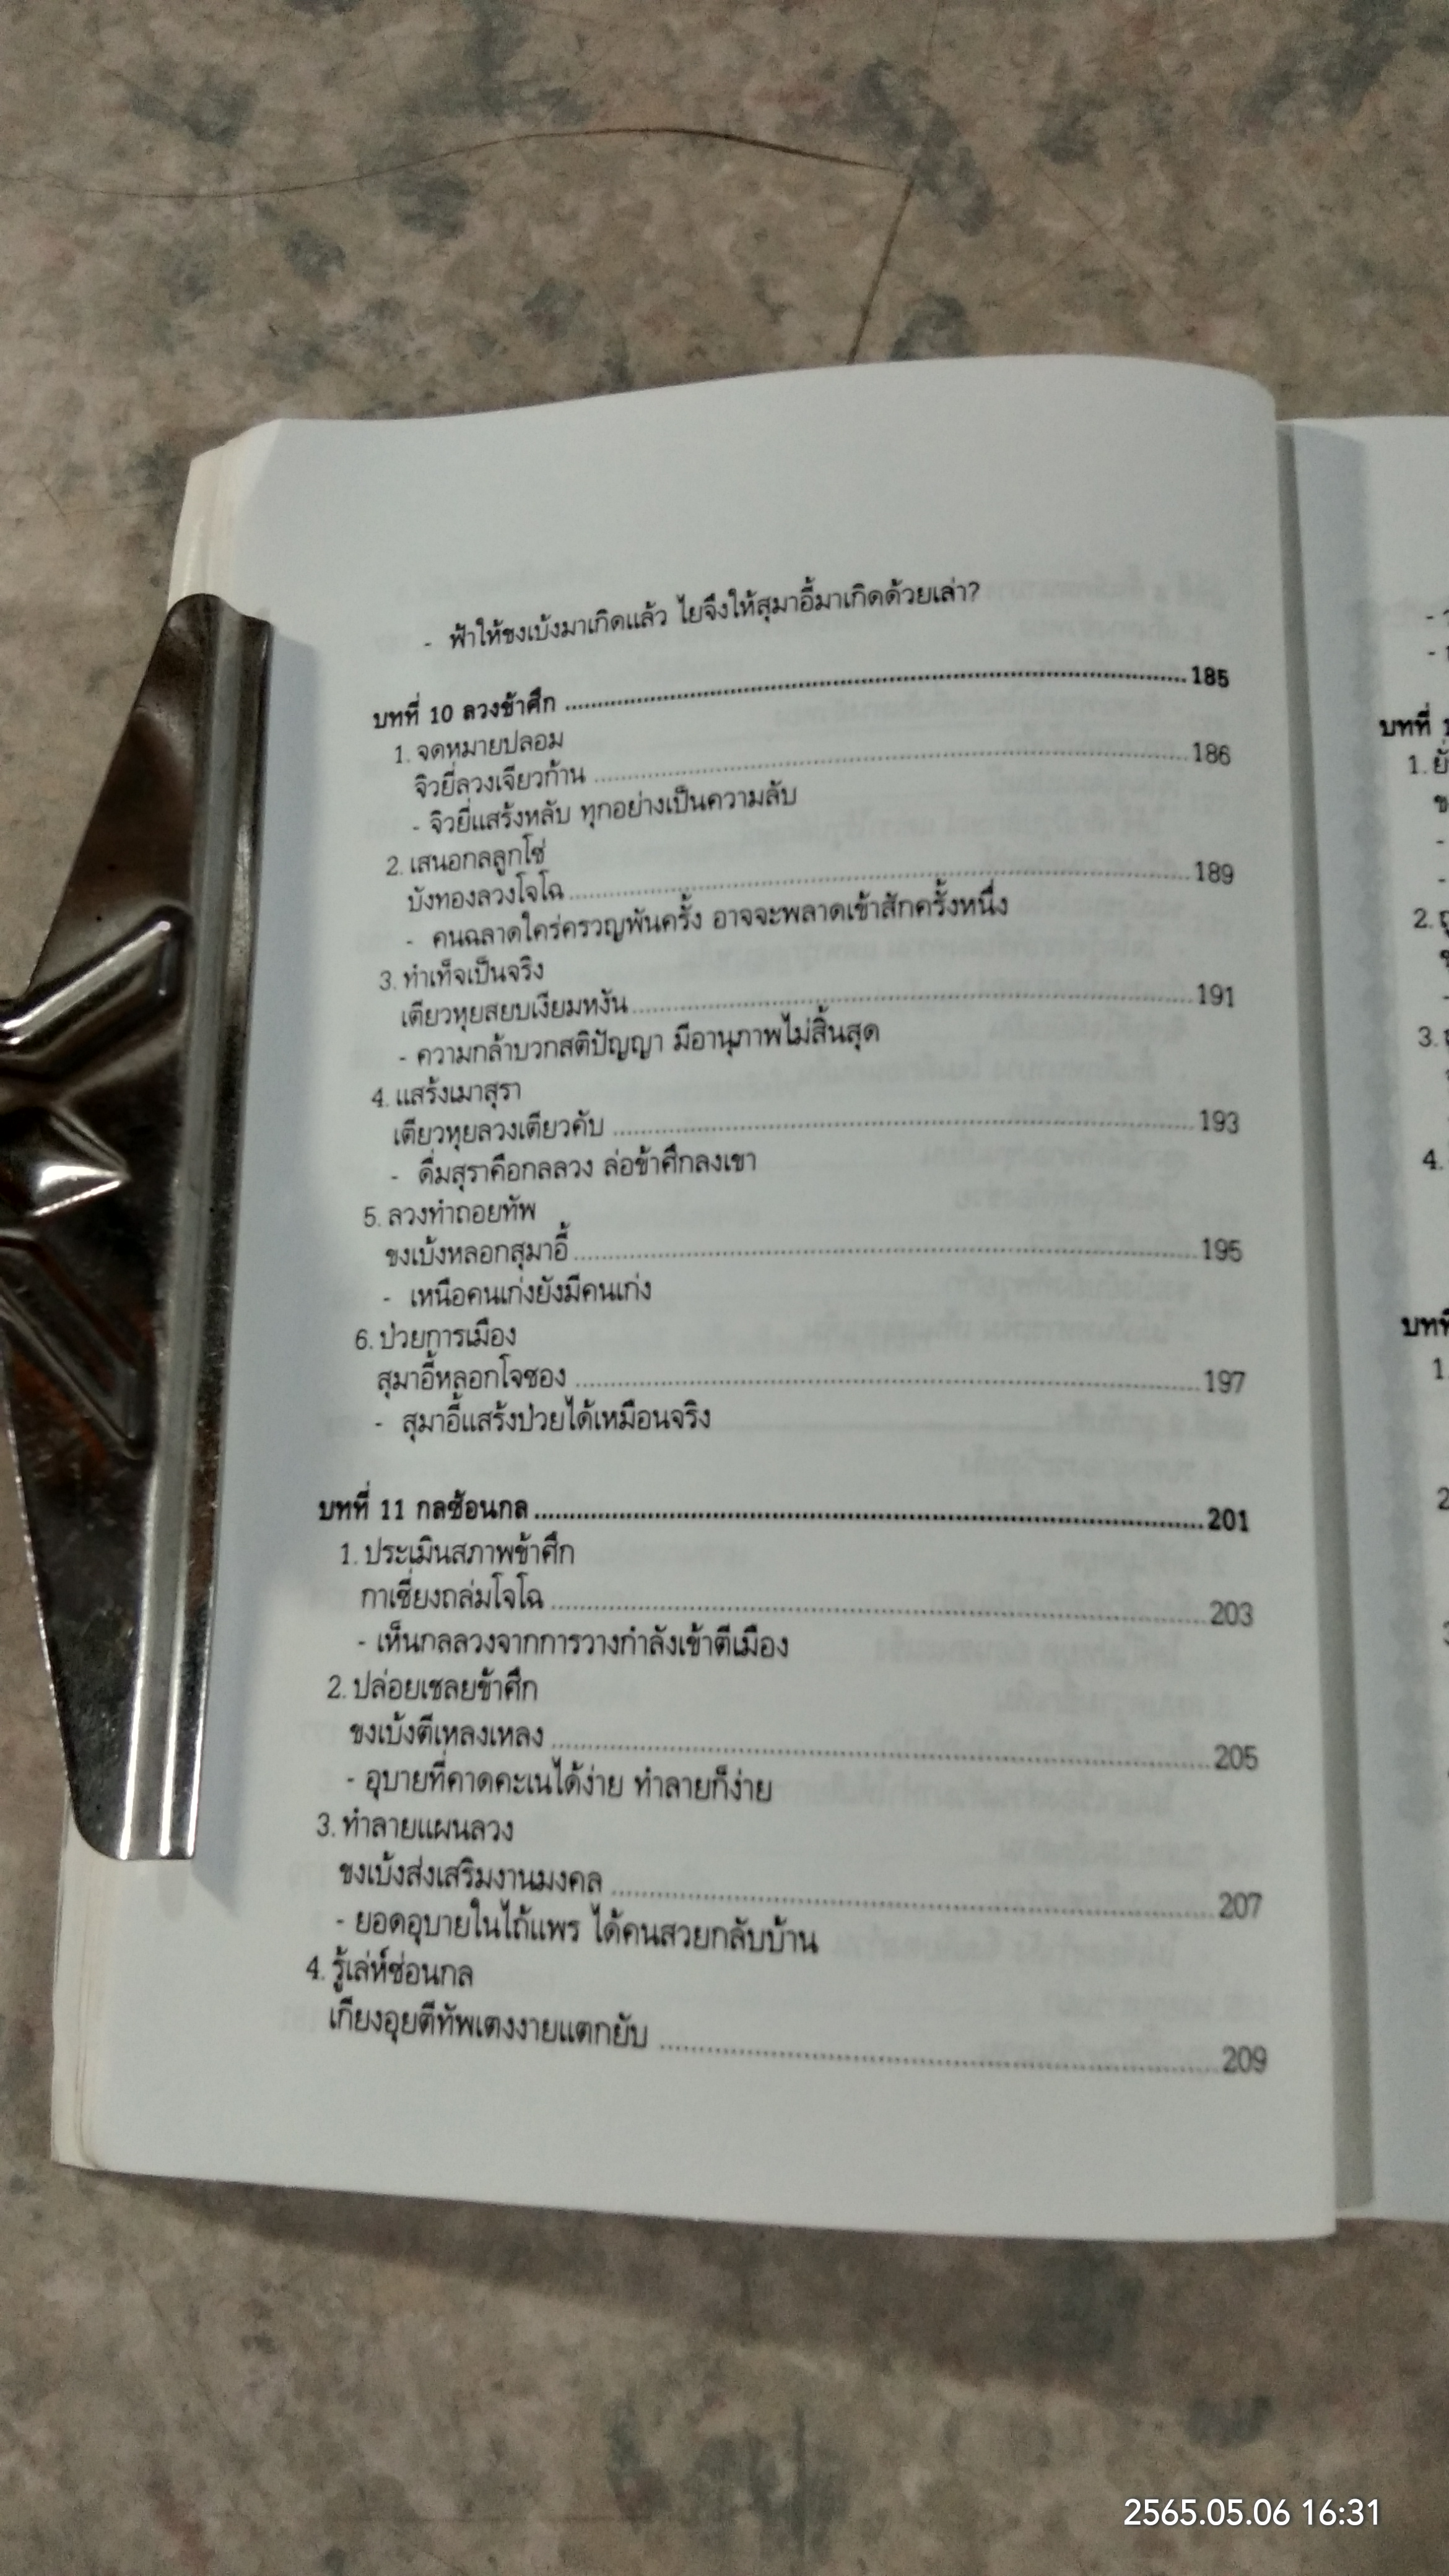 - ฟ้าให้ขงเบ้งมาเกิดแล้ว ไยจึงให้สุมาอี้มาเกิดด้วยเล่า?
บทที่ 10 ลวงข้าศึก ........ 185
1. จดหมายปลอม
จิวยี่ลวงเจียวก้าน ........ 186
- จิวยี่แสร้งหลับ ทุกอย่างเป็นความลับ
2. เสนอกลลูกโซ่
บังทองลวงโจโฉ ........ 189
- คนฉลาดใคร่ครวญพันครั้ง อาจจะพลาดเข้าสักครั้งหนึ่ง
3. ทำเท็จเป็นจริง
เตียวหุยสยบเงียมหงัน ........ 191
- ความกล้าบวกสติปัญญา มีอานุภาพไม่สิ้นสุด
4. แสร้งเมาสุรา
เตียวหุยลวงเตียวคับ ........ 193
- ดื่มสุราคือกลลวง ล่อข้าศึกลงเขา
5. ลวงทำถอยทัพ
ขงเบ้งหลอกสุมาอี้ ........ 195
- เหนือคนเก่งยังมีคนเก่ง
6. ป่วยการเมือง
สุมาอี้หลอกโจซอง ........ 197
- สุมาอี้แสร้งป่วยได้เหมือนจริง
บทที่ 11 กลซ้อนกล ........ 201
1. ประเมินสภาพข้าศึก
กาเซี่ยงถล่มโจโฉ ........ 203
- เห็นกลลวงจากการวางกำลังเข้าตีเมือง
2. ปล่อยเชลยข้าศึก
ขงเบ้งตีเหลงเหลง ........ 205
- อุบายที่คาดคะเนได้ง่าย ทำลายก็ง่าย
3. ทำลายแผนลวง
ขงเบ้งส่งเสริมงานมงคล ........ 207
- ยอดอุบายในไถ้แพร ได้คนสวยกลับบ้าน
4. รู้เล่ห์ซ่อนกล
เกียงอุยตีทัพเตงงายแตกยับ ........ 209
บทที่
1.
2.
3.
4.
บทที่
1.
2
2565.05.06 16:31